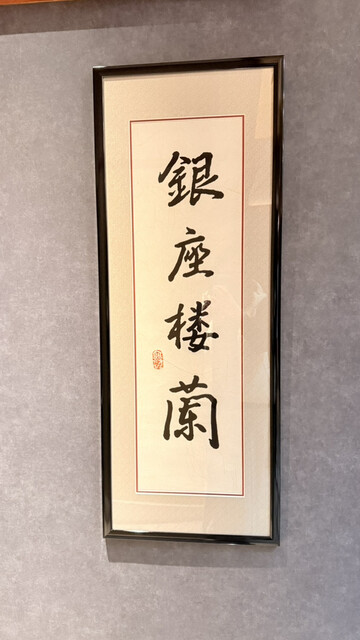 銀座楼蘭